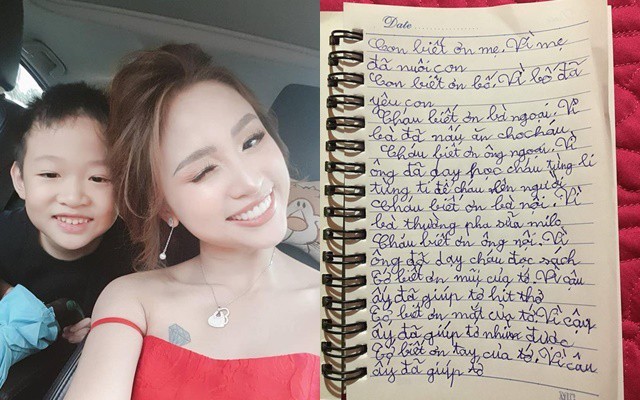 Date
Con biết ơn mẹ, Vì mẹ
đã nuôi con
Con biết ơn bố, Vì bố đã
yêu con
Cháu biết ơn bà ngoại, Vì
bà đã nấy ăn cho cháu
Cháu biết ơn ông ngoại, Vì
ông đã dạy học cháu từng li
từng tí để cháu lên người
Cháu biết ơn bà nội, Vì
bà thường pha sữa milo
Cháu biết ơn ông nội, Vì
ông đã dạy cháu đọc sạch
Tớ biết ơn mũi của tớ, Vì cậu
ấy đã giúp tớ hít thở
Tớ biết ơn mắt của tớ Vì cậu
ấy đã giúp tớ nhìn được
Tớ biết ơn tay của tớ, Vì cậu
ấy đã giúp tớ